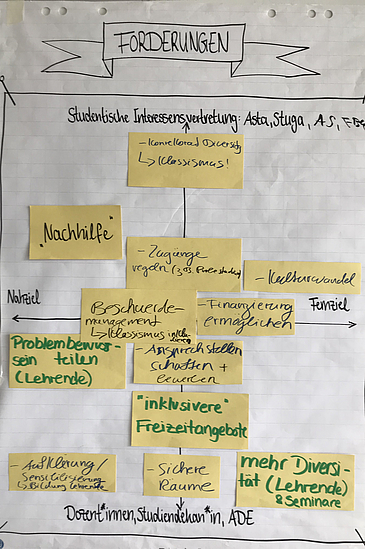 FÖRDERUNGEN
Studentische Interessensvertretung: Asta, Stuga, AS,
- Konrektorad Diversity
↳ Klassismus!
"Nachhilfe"
- Zugänge
regeln
- Kulturwandel
Nahziel
Fernziel
Beschwerde-
management
↳ Klassismus
- Finanzierung
ermöglichen
Problembewusst-
sein teilen
(Lehrende)
- Ansprechstellen
schaffen +
bewerben
"inklusivere"
Freizeitangebote
- Aufklärung/
Sensibilisierung
↳ Bildung Lehrende
- Sichere
Räume
mehr Diversi-
tät (Lehrende)
& Seminare
Dozent*innen, Studiendekan*in, ADE